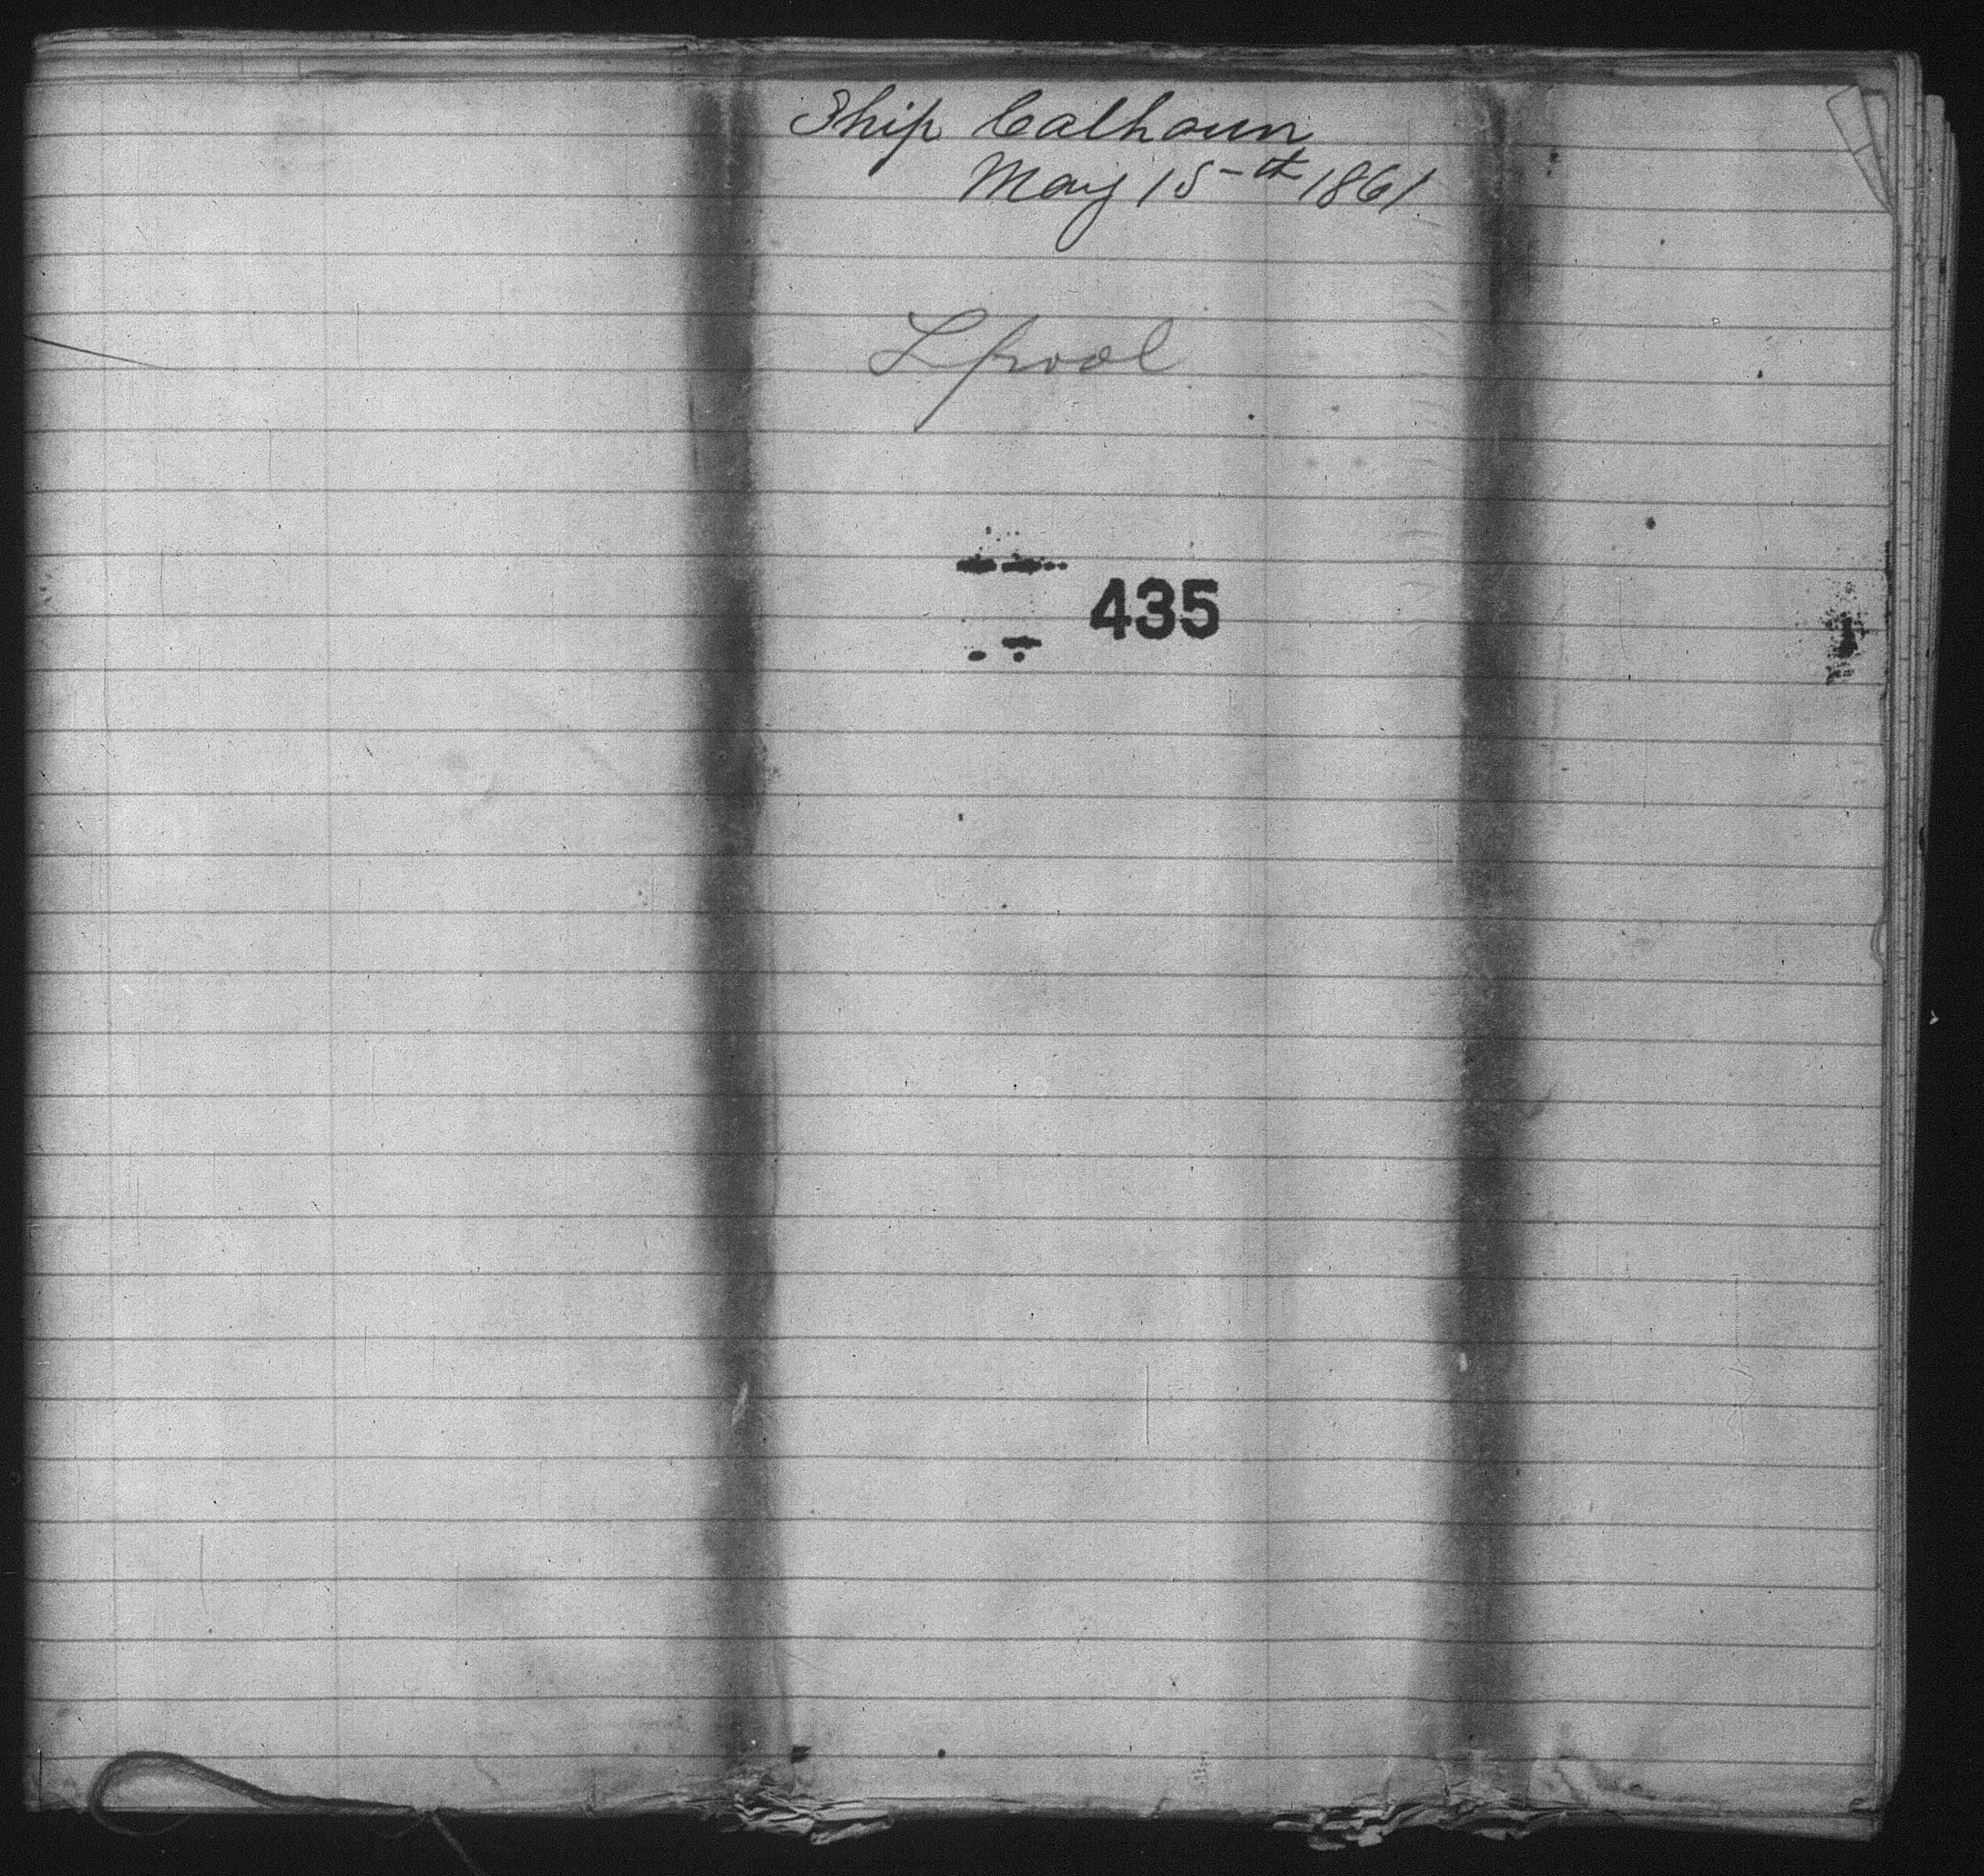 Ship Calhoun
May 15-th 1861
Lpool
435